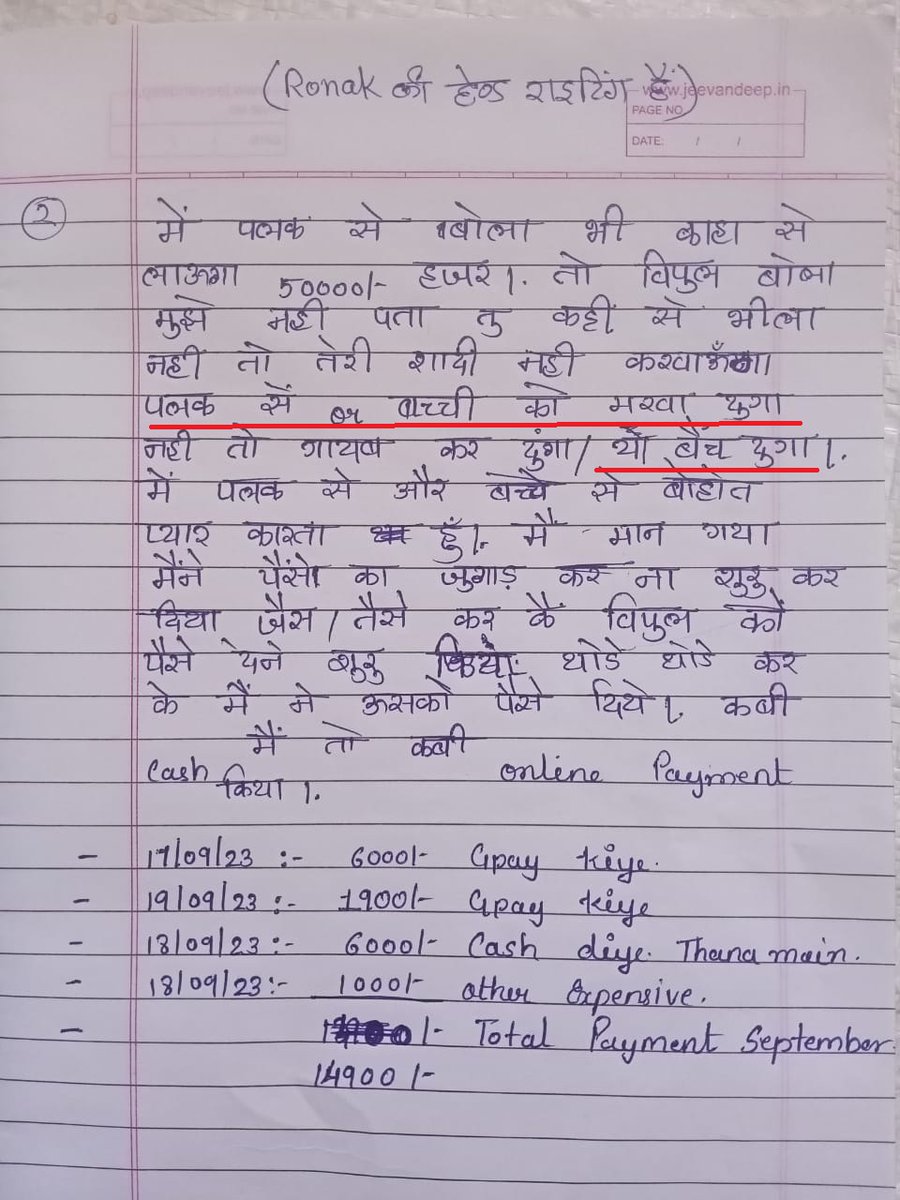 (Ronak की हेण्ड राइटिंग हैं)
www.jeevandeep.in
PAGE NO.
DATE: / /
2
में पलक से बोला भी काहा से
लाऊगा 50000/- हजर।. तो विपुल बोला
मुझे नही पता तु कही से भीला
नही तो तेरी शादी नही करवाऊँगा
पलक सें or बाच्ची को मरवा दुगा
नही तो गायब कर दुंगा/ यो बैच दुगा।.
में पलक से और बच्चे से बोहोत
प्यार कारता हुँ।. मैं मान गया
मैंने पैंसो का जुगाड़ कर ना शुरू कर
दिया जैस/तैसे कर कै विपुल कों
पैसे देने शुरु किये थोडे थोडे कर
के मैं ने ऊसको पैसे दिये।. कबी
Cash मैं तो कबी online Payment
किया।.
- 17/09/23 :- 6000/- Gpay kiye.
- 19/09/23 :- 1900/- Gpay kiye
- 18/09/23:- 6000/- Cash diye. Thana main.
- 18/09/23:- 1000/- other Expensive.
- /- Total Payment September
14900/-